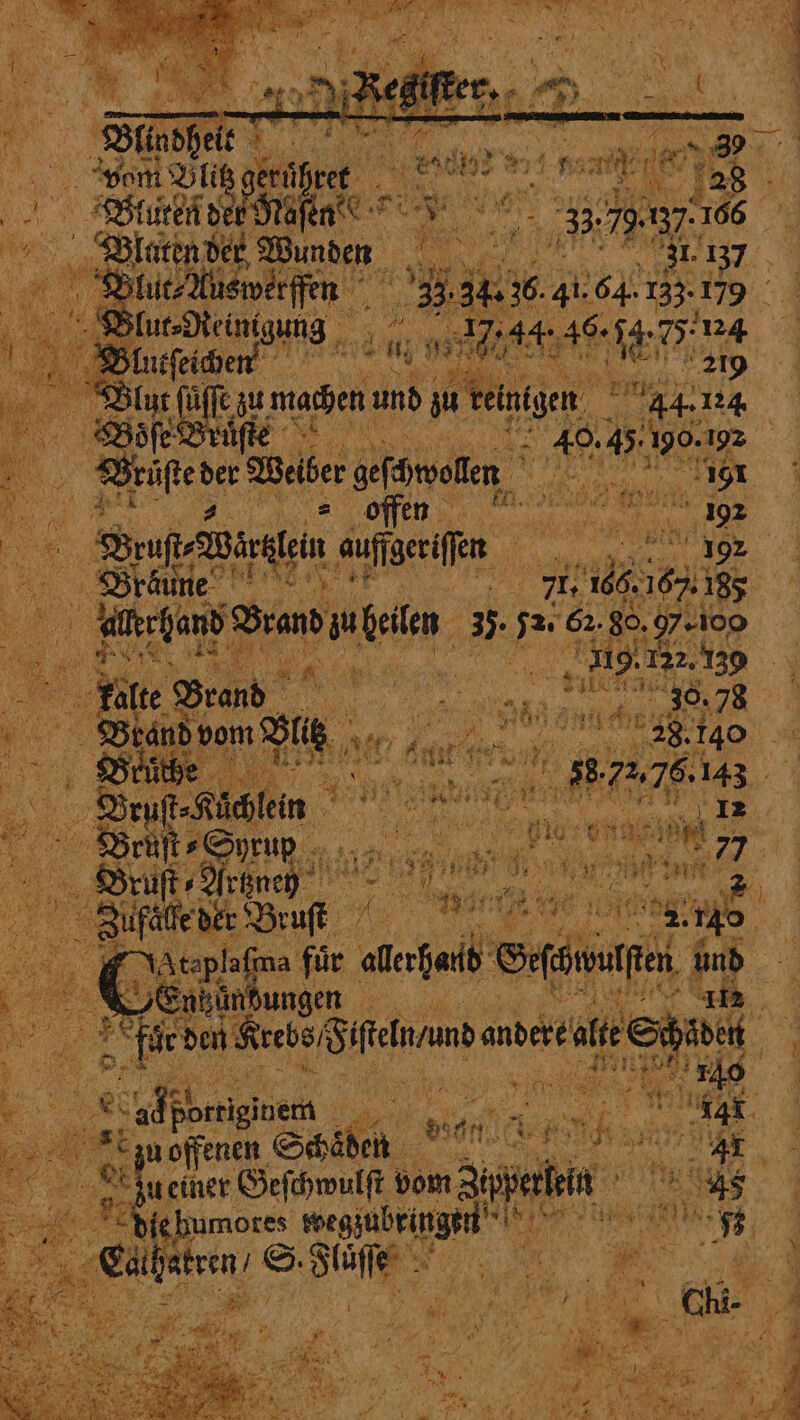 Regiſter.
Blindheit 39
vom Blitz gerühret 28
Bluten der Naſen 33. 79. 137. 166
Bluten der Wunden 31. 137
Blut⸗Auswerffen 33. 34. 36. 41. 64. 133. 179
Blut⸗Reinigung 17. 44. 46. 54. 75. 124
Blutſeichen 219
Blut ſüſſe zu machen und zu reinigen 44. 124
Böſe Brüſte 40. 45. 190. 192
Brüſte der Weiber geſchwollen 191
⸗ ⸗ offen 192
Bruſt⸗Wärtzlein auffgeriſſen 192
Bräune 71. 166. 167. 185
allerhand Brand zu heilen 35. 52. 62. 80. 97. 100
119. 122. 139
kalte Brand 30. 78
Brand vom Blitz 28. 140
Brüche 58. 72. 76. 143
Bruſt⸗Küchlein 12
Bruſt⸗Syrup 77
Bruſt⸗Artzney 2
Zufälle der Bruſt 2. 140
CAtaplaſma für allerhand Geſchwulſten und
Entzündungen 112
für den Krebs/Fiſteln/und andere alte Schäden
140
ad porriginem 141
zu offenen Schäden 41
zu einer Geſchwulſt vom Zipperlein 45
die humores wegzubringen 53
Cathatren/ S. Flüſſe
Chi-